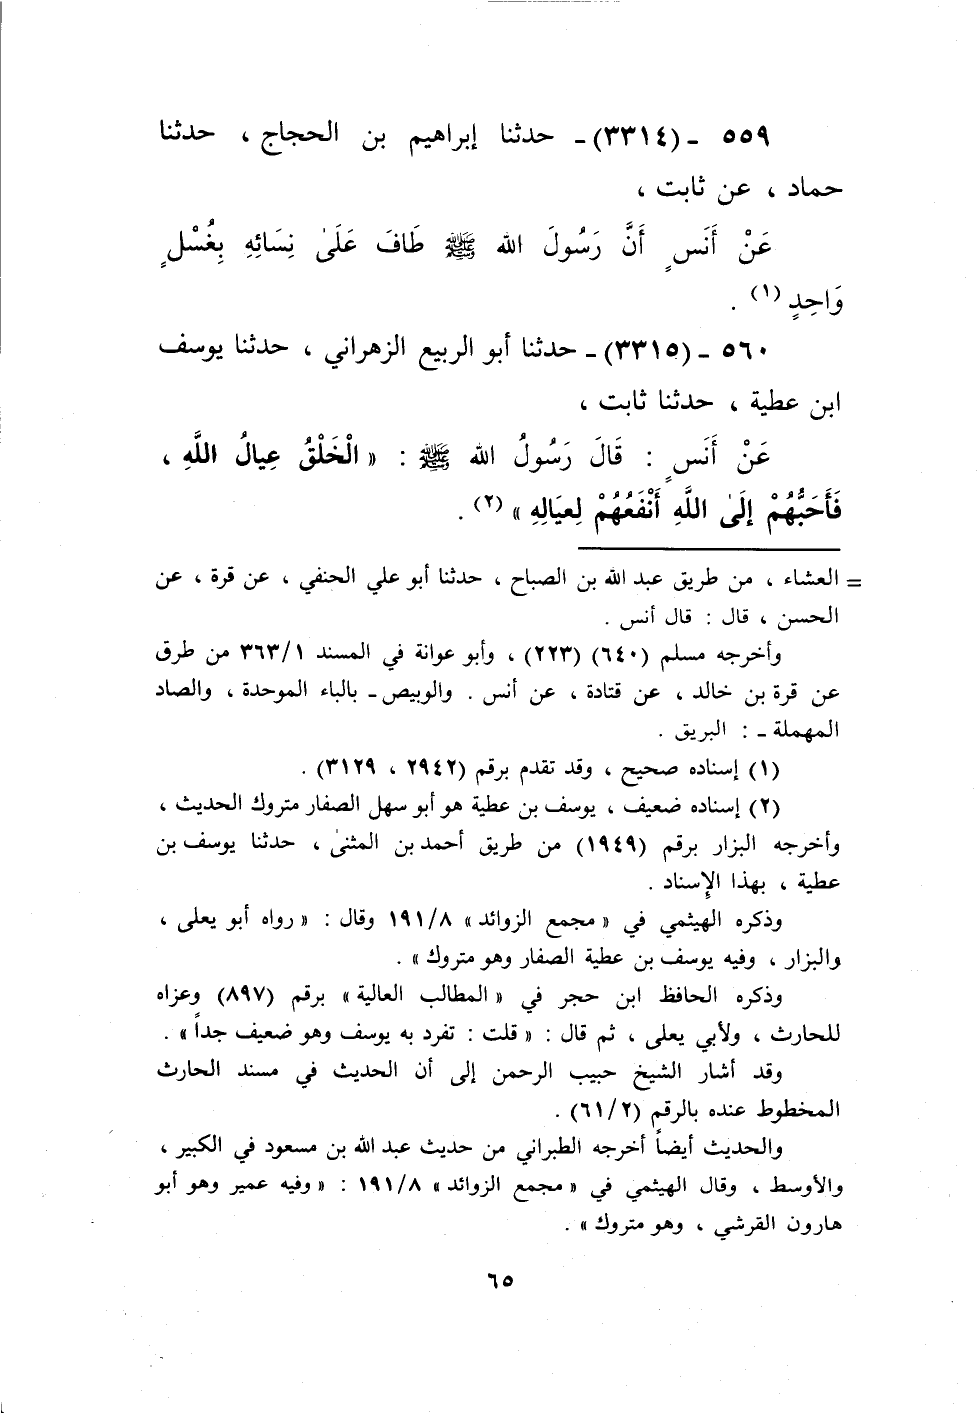 ٥٥٩ ـ (٣٣١٤) ـ حدثنا إبراهيم بن الحجاج ، حدثنا
حماد ، عن ثابت ،
عَنْ أَنَسٍ أَنَّ رَسُولَ الله ﷺ طَافَ عَلَىٰ نِسَائِهِ بِغُسْلٍ
وَاحِدٍ (١) .
٥٦٠ ـ (٣٣١٥) ـ حدثنا أبو الربيع الزهراني ، حدثنا يوسف
ابن عطية ، حدثنا ثابت ،
عَنْ أَنَسٍ : قَالَ رَسُولُ الله ﷺ : « الْخَلْقُ عِيالُ اللَّهِ ،
فَأَحَبُّهُمْ إِلَىٰ اللَّهِ أَنْفَعُهُمْ لِعيَالِهِ » (٢) .
= العشاء ، من طريق عبد الله بن الصباح ، حدثنا أبو علي الحنفي ، عن قرة ، عن
الحسن ، قال : قال أنس .
وأخرجه مسلم (٦٤٠) (٢٢٣) ، وأبو عوانة في المسند ٣٦٣/١ من طرق
عن قرة بن خالد ، عن قتادة ، عن أنس . والوبيص ـ بالباء الموحدة ، والصاد
المهملة ـ : البريق .
(١) إسناده صحيح ، وقد تقدم برقم (٢٩٤٢ ، ٣١٢٩) .
(٢) إسناده ضعيف ، يوسف بن عطية هو أبو سهل الصفار متروك الحديث ،
وأخرجه البزار برقم (١٩٤٩) من طريق أحمد بن المثنىٰ ، حدثنا يوسف بن
عطية ، بهذا الإِسناد .
وذكره الهيثمي في « مجمع الزوائد » ١٩١/٨ وقال : « رواه أبو يعلى ،
والبزار ، وفيه يوسف بن عطية الصفار وهو متروك » .
وذكره الحافظ ابن حجر في « المطالب العالية » برقم (٨٩٧) وعزاه
للحارث ، ولأبي يعلى ، ثم قال : « قلت : تفرد به يوسف وهو ضعيف جداً » .
وقد أشار الشيخ حبيب الرحمن إلى أن الحديث في مسند الحارث
المخطوط عنده بالرقم (٦١/٢) .
والحديث أيضاً أخرجه الطبراني من حديث عبد الله بن مسعود في الكبير ،
والأوسط ، وقال الهيثمي في « مجمع الزوائد » ١٩١/٨ : « وفيه عمير وهو أبو
هارون القرشي ، وهو متروك » .
٦٥